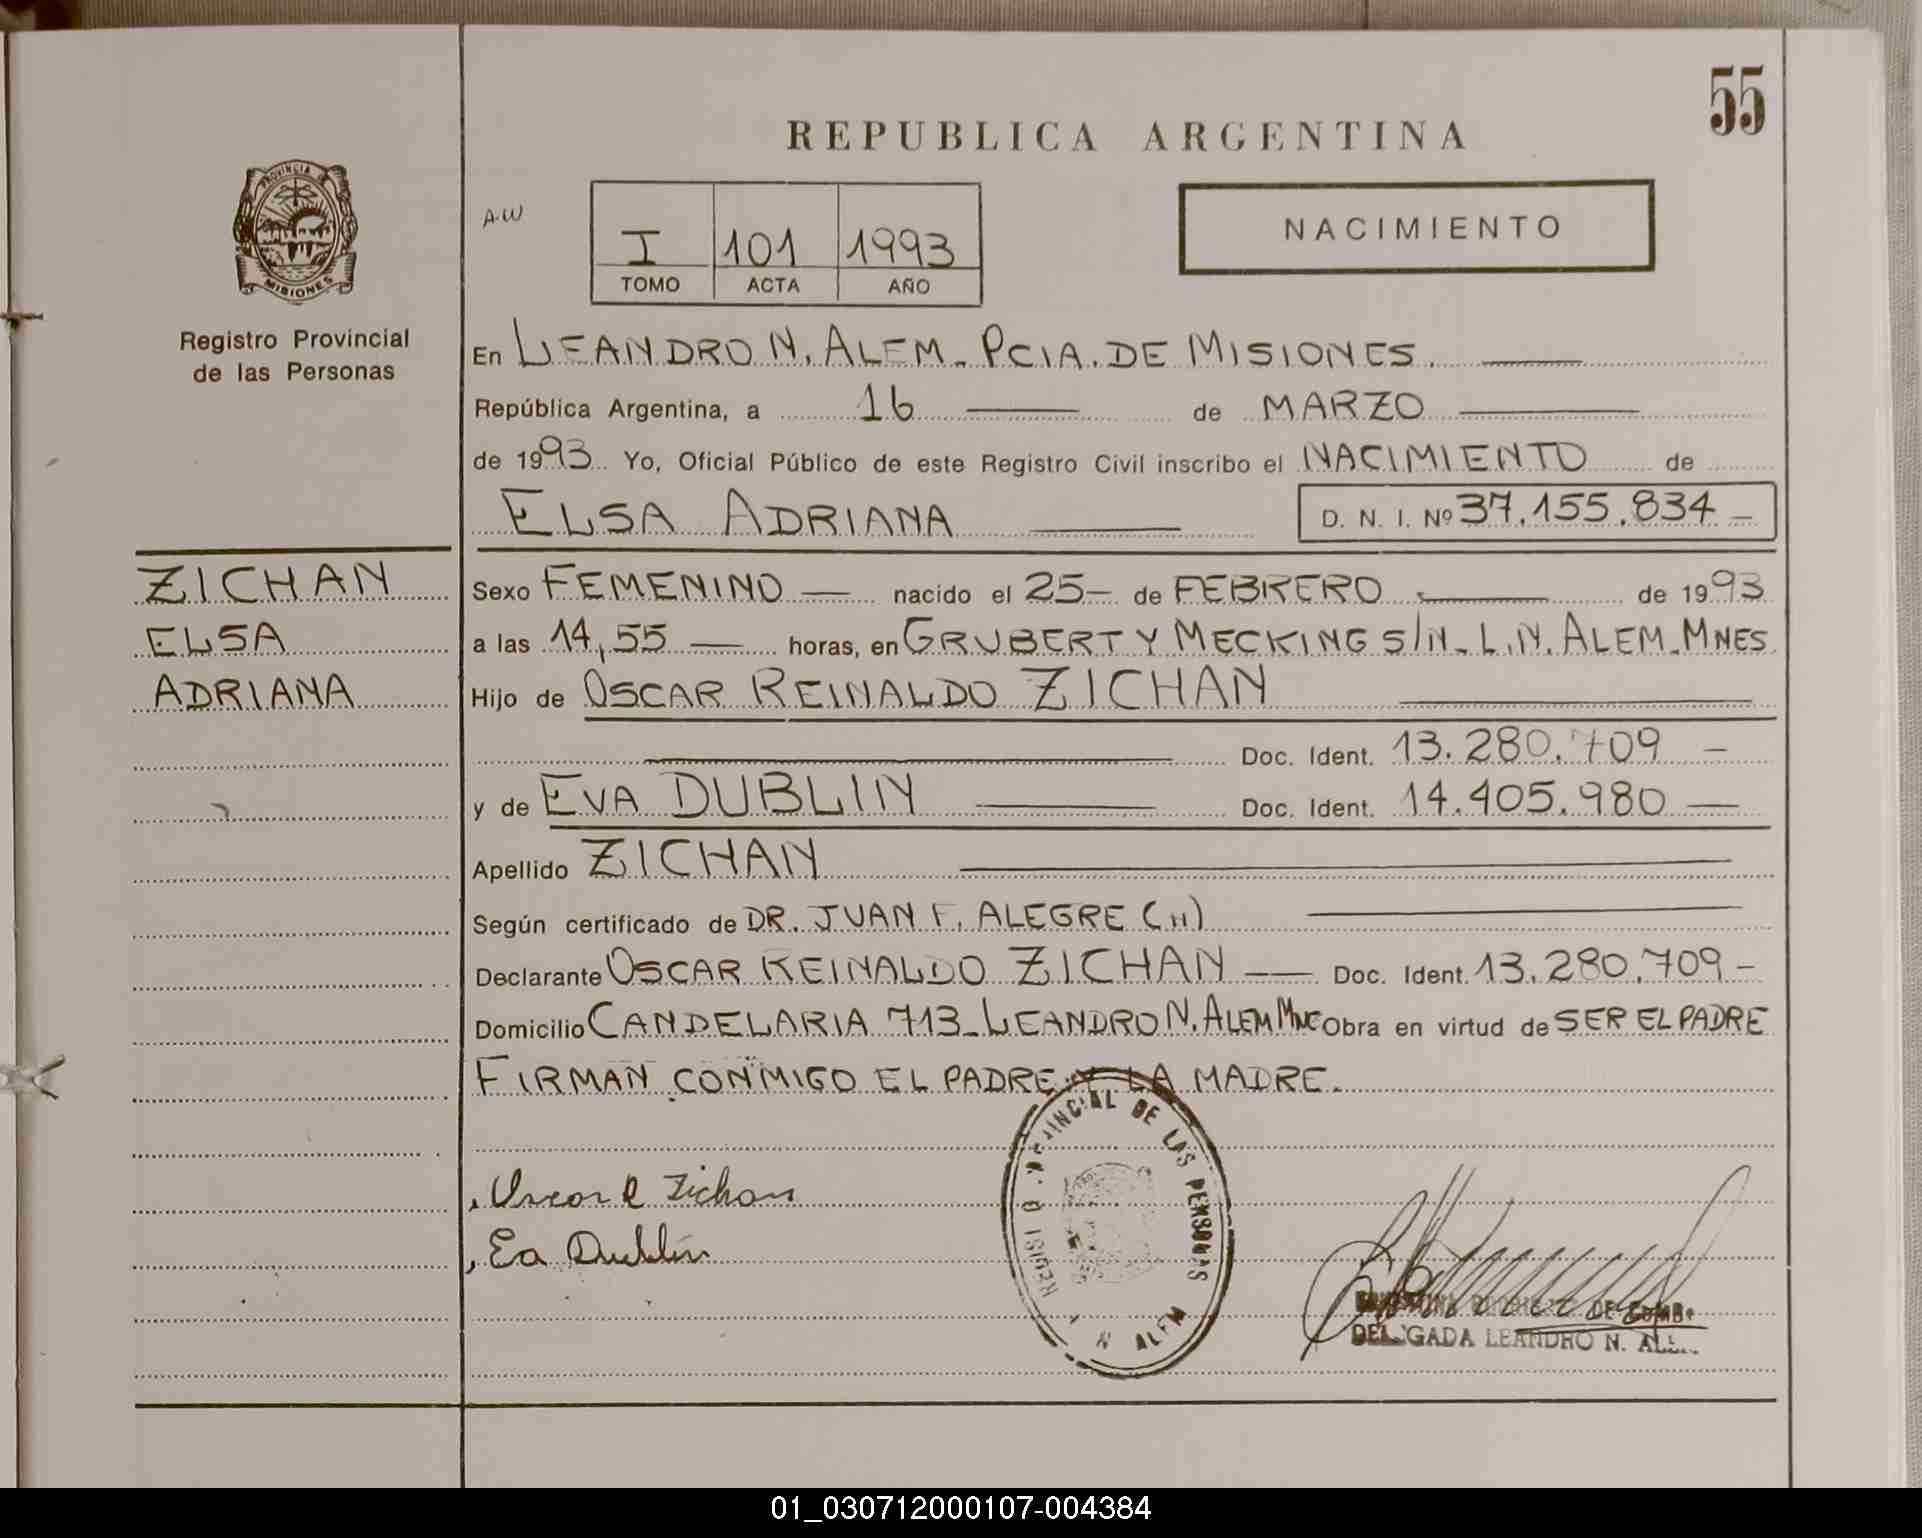 55
REPUBLICA ARGENTINA
PROVINCIA DE
MISIONES
Registro Provincial
de las Personas
A.W
I 101 1993
TOMO ACTA AÑO
NACIMIENTO
En LEANDRO N. ALEM - PCIA. DE MISIONES.
República Argentina, a 16 de MARZO
de 1993 Yo, Oficial Público de este Registro Civil inscribo el NACIMIENTO de
ELSA ADRIANA D. N. I. Nº 37.155.834 -
ZICHAN
ELSA
ADRIANA
Sexo FEMENINO nacido el 25- de FEBRERO de 1993
a las 14,55 horas, en GRUBERT Y MECKING S/N - L.N. ALEM - MNES
Hijo de OSCAR REINALDO ZICHAN
Doc. Ident. 13.280.709 -
y de EVA DUBLIN Doc. Ident. 14.405.980
Apellido ZICHAN
Según certificado de DR. JUAN F. ALEGRE (H)
Declarante OSCAR REINALDO ZICHAN Doc. Ident. 13.280.709 -
Domicilio CANDELARIA 713 - LEANDRO N. ALEM MNE Obra en virtud de SER EL PADRE
FIRMAN CONMIGO EL PADRE Y LA MADRE.
Oscar R Zichan
Ea Dublin
PROVINCIAL DE LAS PERSONAS
N ALEM
DE
DELEGADA LEANDRO N. ALEM
01_030712000107-004384